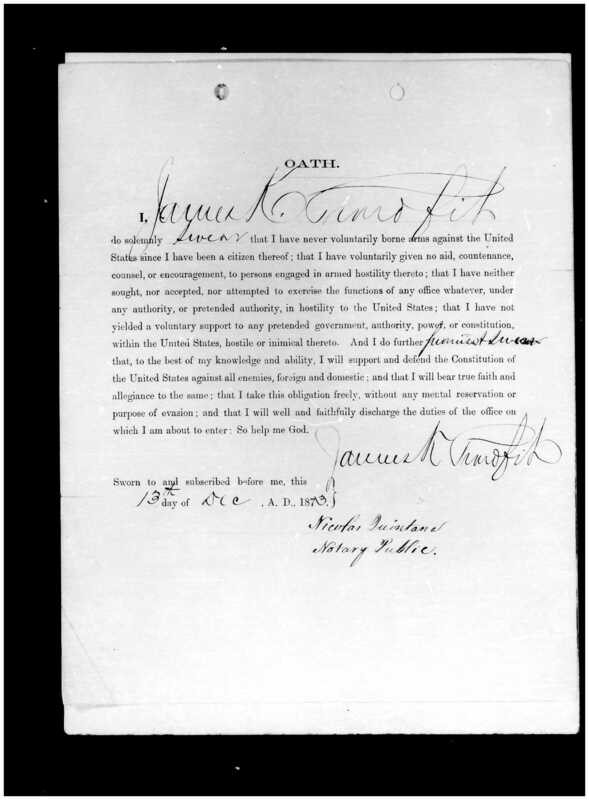 OATH.
I, James K. Proudfit
do solemnly swear that I have never voluntarily borne arms against the United
States since I have been a citizen thereof; that I have voluntarily given no aid, countenance,
counsel, or encouragement, to persons engaged in armed hostility thereto; that I have neither
sought, nor accepted, nor attempted to exercise the functions of any office whatever, under
any authority, or pretended authority, in hostility to the United States; that I have not
yielded a voluntary support to any pretended government, authority, power, or constitution,
within the United States, hostile or inimical thereto. And I do further swear
that, to the best of my knowledge and ability, I will support and defend the Constitution of
the United States against all enemies, foreign and domestic; and that I will bear true faith and
allegiance to the same; that I take this obligation freely, without any mental reservation or
purpose of evasion; and that I will well and faithfully discharge the duties of the office on
which I am about to enter: So help me God.
James K Proudfit
Sworn to and subscribed before me, this
13th day of Dec , A. D., 1873.
Nicolas Quintana
Notary Public.